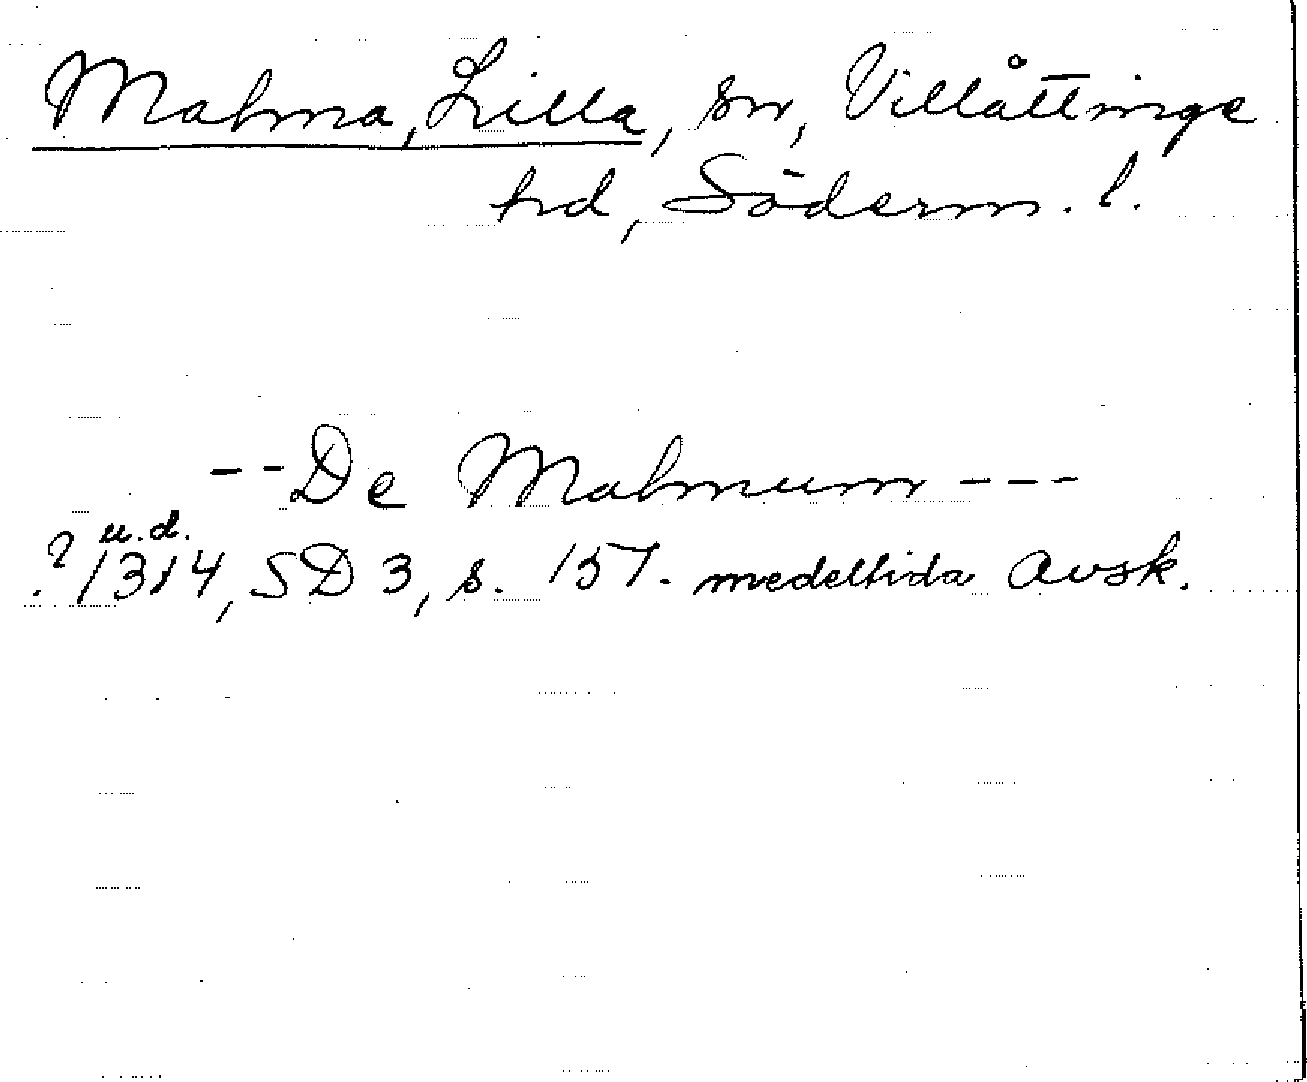 Malma, Lilla, sn, Villåttinge
hd, Söderm. l.
--De Malmum---
u.d.
? 1314, SD 3, s. 157. medeltida avsk.